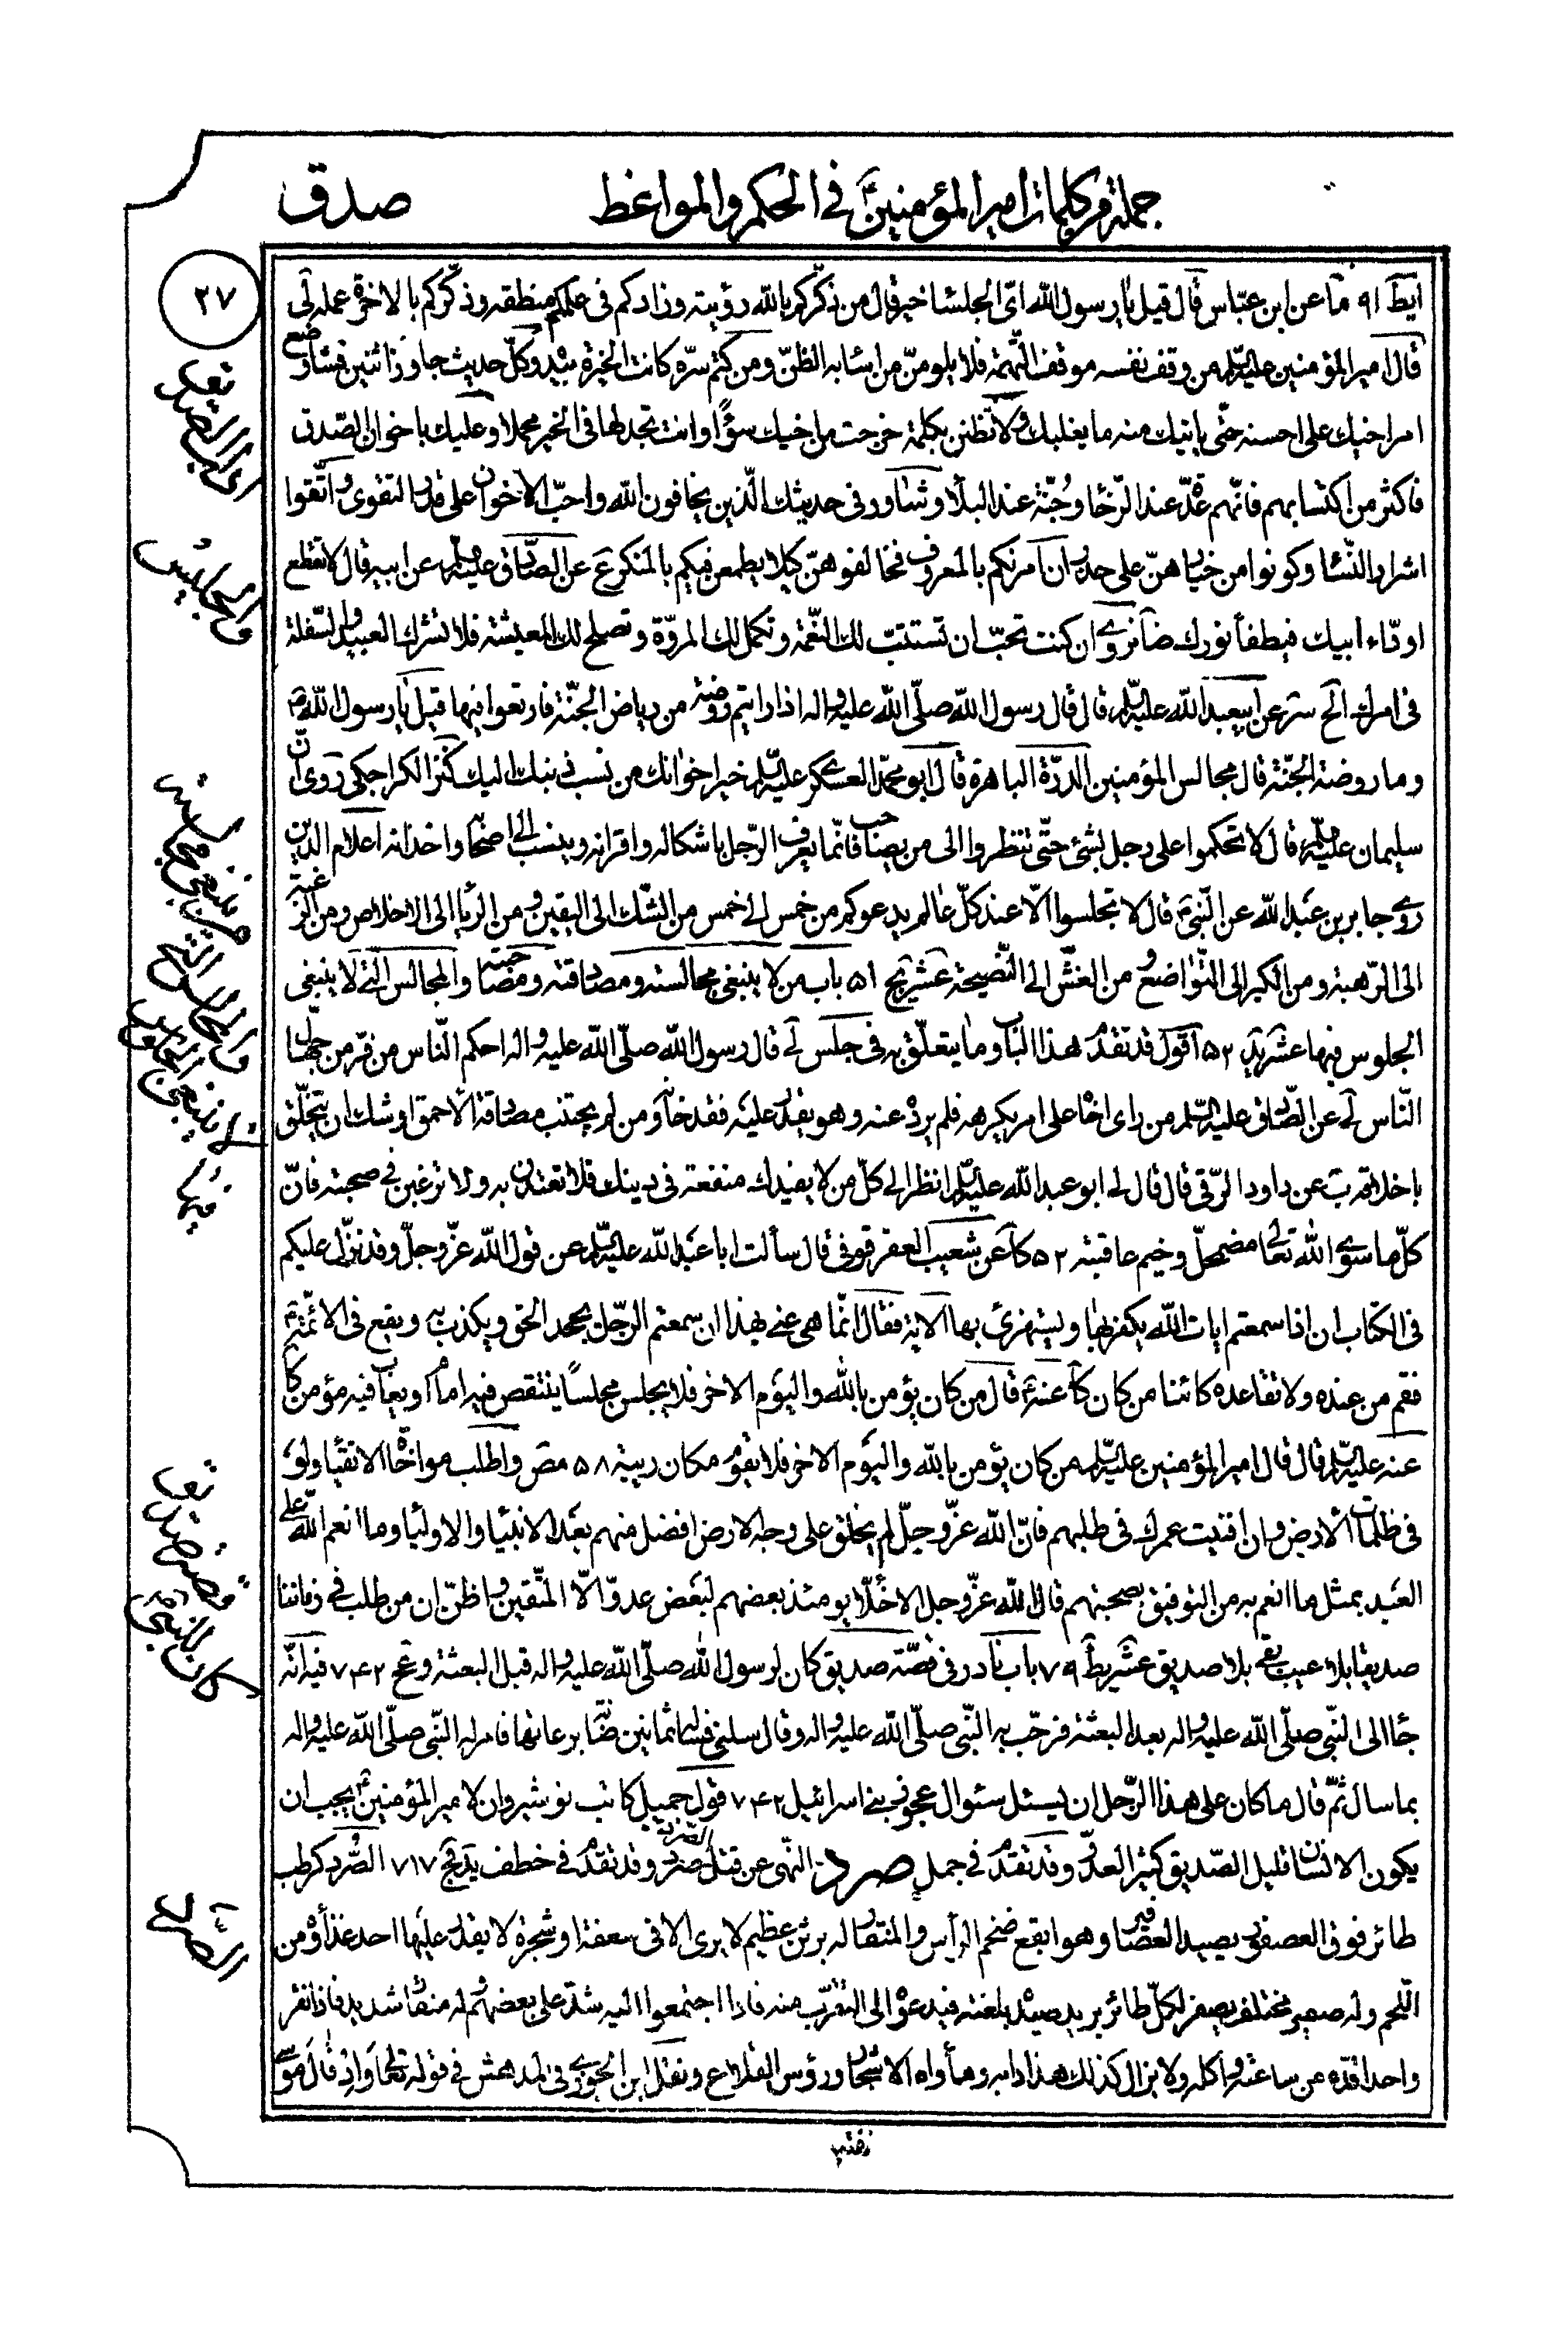 جملة من كلمات امير المؤمنينؑ في الحكم والمواعظ
صدق
٢٧
ايط ٩١ ما عن ابن عبّاس قال قيل يا رسول الله اىّ الجلساء خير قال من ذكّركم بالله رؤيته وزادكم فى علمكم منطقه وذكّركم بالاخرة عمله لى
قال امير المؤمنين عليه السلم من وقف نفسه موقف التّهمة فلا يلومنّ من اساء به الظنّ ومن كتم سرّه كانت الخيرة بيده وكلّ حديث جاوز اثنين فشا وضع
امر اخيك على احسنه حتّى ياتيك منه ما يغلبك ولا تظنن بكلمة خرجت من اخيك سوًّا وانت تجد لها فى الخير محملا وعليك باخوان الصّدق
فاكثر من اكتسابهم فانّهم عدّة عند الرّخاء وجُنّة عند البلاء وشاور فى حديثك الّذين يخافون الله واحبّ الاخوان على قدر التقوى واتّقوا
اشرار النّساء وكونوا من خيارهنّ على حذر ان امرنكم بالمعروف فخالفوهنّ كيلا يطمعن فيكم بالمنكر ع عن الصّادق عليه السلم عن ابيه قال لا تقطع
اودّاء ابيك فيطفأ نورك ضا نروى ان كنت تحبّ ان تستتبّ لك النّعمة وتكمل لك المروّة وتصلح لك المعيشة فلا تشرك العبيد والسّفلة
فى امرك الخ شر عن ابيعبد الله عليه السلم قال قال رسول الله صلّى الله عليه واله اذا رايتم روضة من رياض الجنّة فارتعوا فيها قيل يا رسول اللهؐ
وما روضة الجنّة قال مجالس المؤمنين الدرّة الباهرة قال ابو محمّد العسكرى عليه السلم خير اخوانك من نسى ذنبك اليك كنز الكراجكى روى انّ
سليمان عليه السلم قال لا تحكموا على رجل بشئ حتّى تنظروا الى من يصاحب فانّما يعرف الرّجل باشكاله واقرانه وينسب الى اصحابه واخدانه اعلام الدّين
روى جابر بن عبد الله عن النّبىّؐ قال لا تجلسوا الّا عند كلّ عالم يدعوكم من خمس الى خمس من الشّك الى اليقين ومن الرّياء الى الاخلاص ومن الرّغبة
الى الرّهبة ومن الكبر الى التّواضع ومن الغشّ الى النّصيحة عشر يج ٥١ باب من لا ينبغى مجالسته ومصادقته ومصاحبته والمجالس الّتى لا ينبغى
الجلوس فيها عشر يد ٥٢ اقول قد تقدّم هذا الباب وما يتعلّق به فى جلس لى قال رسول الله صلّى الله عليه واله احكم النّاس من فرّ من جهّال
النّاس لى عن الصّادق عليه السلم من راى اخاه على امر يكرهه فلم يردّه عنه وهو يقدر عليه فقد خانه ومن لم يجتنب مصادقة الاحمق اوشك ان يتخلّق
باخلاقه ب عن داود الرّقى قال قال لى ابو عبد الله عليه السلم انظر الى كلّ من لا يفيدك منفعة فى دينك فلا تعتدّن به ولا ترغبن فى صحبته فانّ
كلّ ما سوى الله تعالى مضمحلّ وخيم عاقبته ٥٢ كا عن شعيب العقرقوفى قال سألت ابا عبد الله عليه السلم عن قول الله عزّ وجلّ وقد نزّل عليكم
فى الكتاب ان اذا سمعتم ايات الله يكفر بها ويستهزئ بها الاية فقال انّما هى عنى بهذا ان سمعتم الرّجل يجحد الحق ويكذب به ويقع فى الائمّةؑ
فقم من عنده ولا تقاعده كائنا من كان كا عنهؑ قال من كان يؤمن بالله واليوم الاخر فلا يجلس مجلسًا ينتقص فيه امام او يعاب فيه مؤمن كا
عنه عليه السلم قال قال امير المؤمنين عليه السلم من كان يؤمن بالله واليوم الاخر فلا يقوم مكان ريبة ٥٨ مص واطلب مواخاة الاتقياء ولو
فى ظلمات الارض وان افنيت عمرك فى طلبهم فانّ الله عزّ وجلّ لم يخلق على وجه الارض افضل منهم بعد الانبياء والاولياء وما انعم الله على
العبد بمثل ما انعم به من التوفيق بصحبتهم قال الله عزّ وجل الاخلّاء يومئذ بعضهم لبعض عدوّ الّا المتّقين واظنّ ان من طلب فى زماننا
صديقا بلا عيب بقى بلا صديق عشر يط ٧٩ باب نادر فى قصّة صديق كان لرسول الله صلّى الله عليه واله قبل البعثة وعج ٧٤٢ فيه انّه
جاء الى النّبى صلّى الله عليه واله بعد البعثة فرحّب به النّبى صلّى الله عليه واله وقال سلنى فسئله ثمانين ضانية برعاتها فامر له النّبى صلّى الله عليه واله
بما سال ثمّ قال ما كان على هذا الرّجل ان يسئل سئوال عجوز بنى اسرائيل ٧٤٢ قول جميل كاتب نوشيروان لامير المؤمنينؑ يجب ان
يكون الانسان قليل الصّديق كثير العدوّ وقد تقدّم فى جمل صرد النّهى عن قتل الصّرد وقد تقدّم فى خطف يد قج ٧١٧ الصُّرد كرطب
طائر فوق العصفور يصيد العصافير وهو ابقع ضخم الرأس والمنقار له برثن عظيم لا يرى الا فى سعفة او شجرة لا يقدر عليها احد غذاؤه من
اللحم وله صفير مختلف يصفر لكلّ طائر يريد صيده بلغته فيدعوه الى التقرّب منه فاذا اجتمعوا اليه شدّ على بعضهم وله منقار شديد فاذا نقر
واحدا قدّه من ساعته واكله ولا يزال كذلك هذا دابه ومأواه الاشجار ورؤس القلاع ونقل ابن الجوزى فى المدهش فى قوله تعالى واذ قال موسى
فى اداب الصديق
والجليس
من ينبغى مجالسته
والمجالس التى
لا ينبغى الجلوس
فيها
قصة صديق
كان للنبىؐ
الصرد